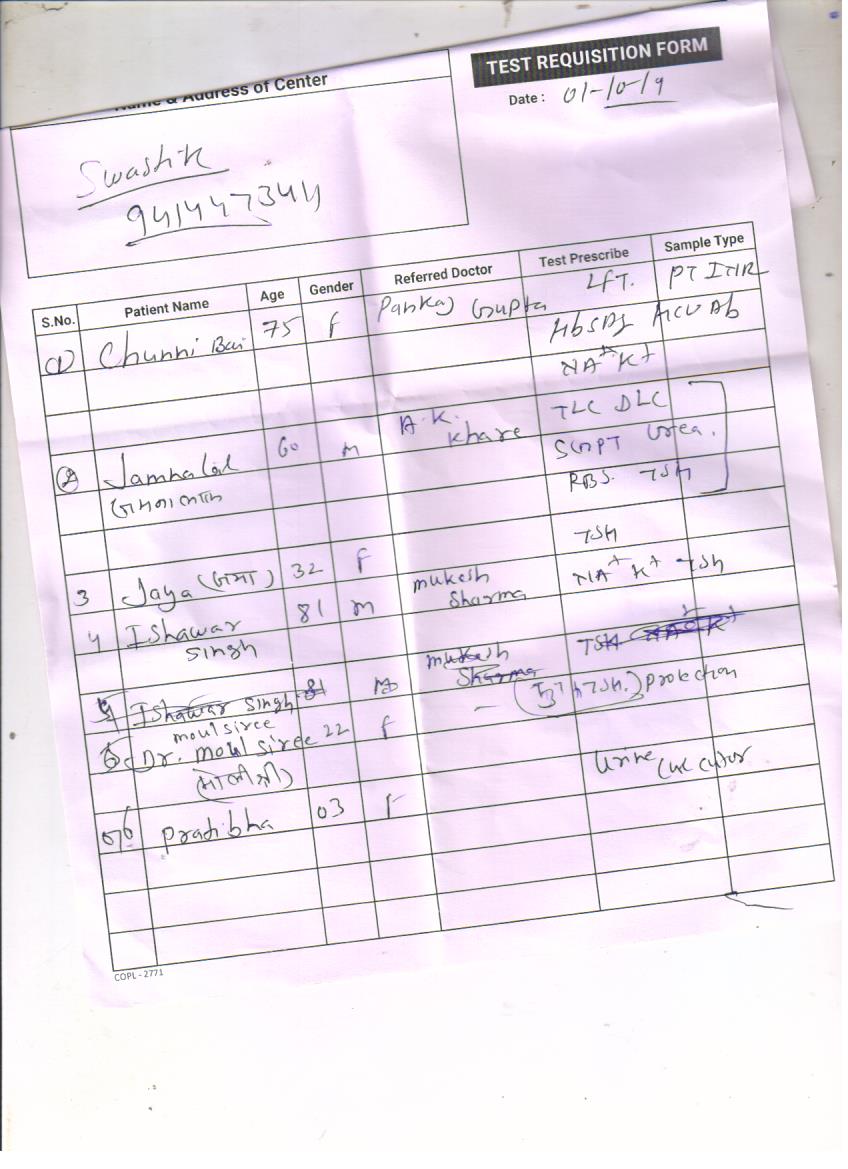 TEST REQUISITION FORM
Name & Address of Center
Date : 01-10-19
Swastik
941447344
S.No. Patient Name Age Gender Referred Doctor Test Prescribe Sample Type
(1) Chunni Bai 75 f Pankaj Gupta LFT. PT INR
HbSAg HCV Ab
NA+ K+
(2) Jamnalal 60 m A.K. Khare TLC DLC
जमनालाल SGPT Urea.
RBS. TSH
3 Jaya (जया) 32 F TSH
4 Ishawar Singh 81 m mukesh Sharma NA+ K+ TSh
5 Ishawar Singh 81 m mukesh Sharma TSH NA+ K+
moulsiree
Dr. moulsiree 22 f - TSH.) Prolection
06 Pratibha 03 F Urine
COPL - 2771